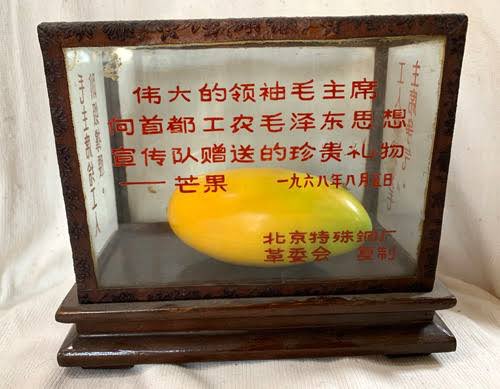 伟大的领袖毛主席
向首都工农毛泽东思想
宣传队赠送的珍贵礼物
——芒果 一九六八年八月五日
北京特殊钢厂
革委会 复制